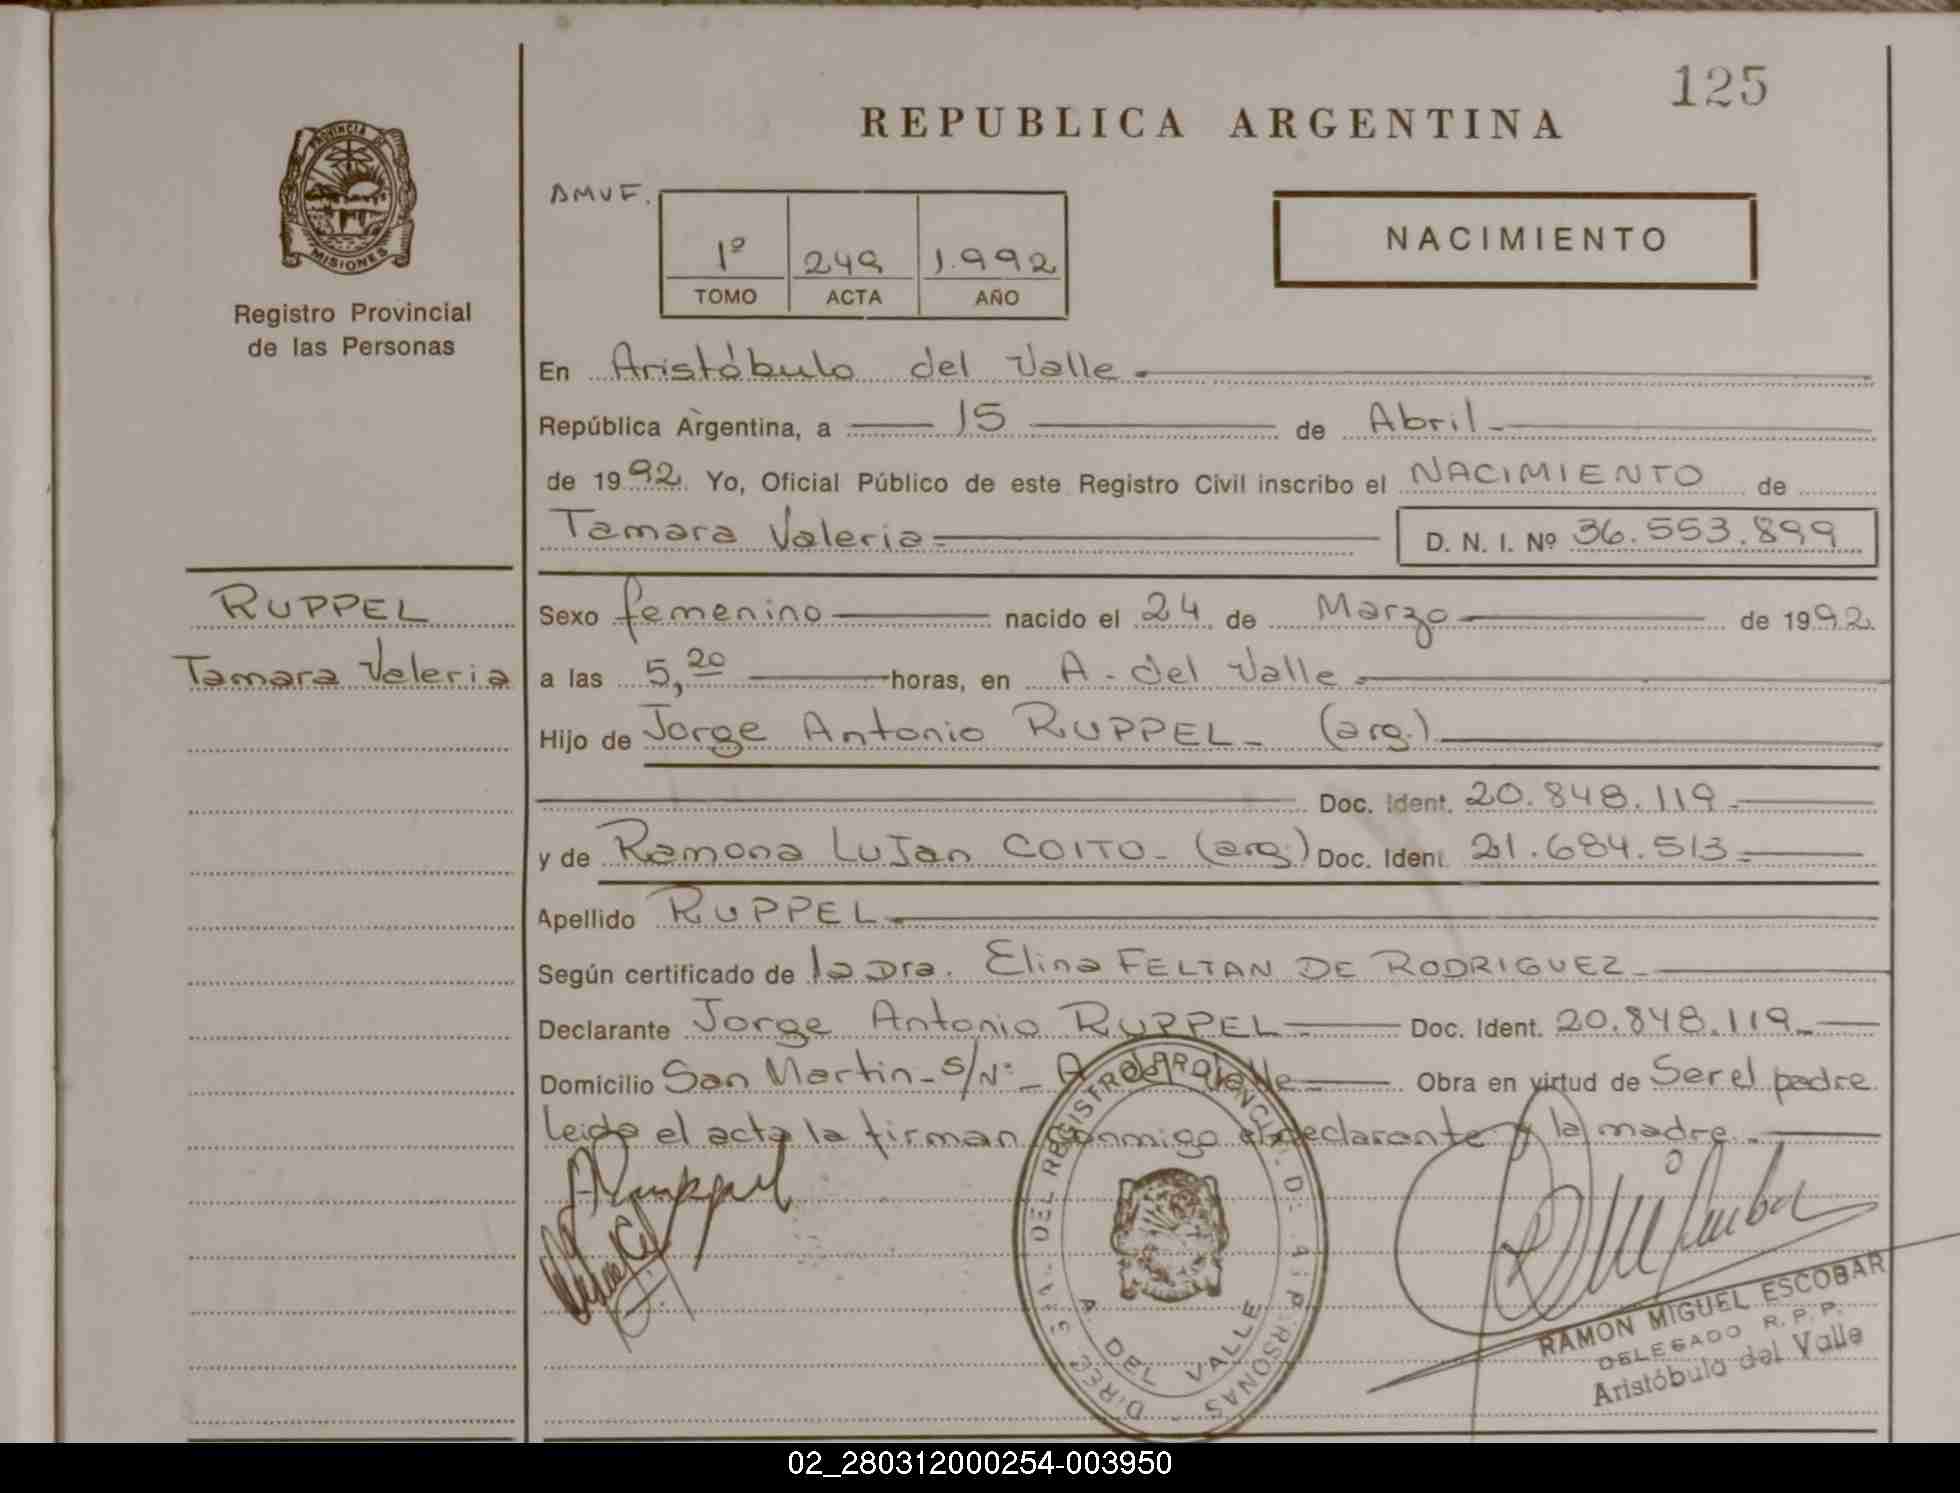 125
REPUBLICA ARGENTINA
PROVINCIA DE
MISIONES
Registro Provincial
de las Personas
AMVF.
1º 249 1.992
TOMO ACTA AÑO
NACIMIENTO
En Aristóbulo del Valle.
República Argentina, a 15 de Abril
de 1992. Yo, Oficial Público de este Registro Civil inscribo el NACIMIENTO de
Tamara Valeria D. N. I. Nº 36.553.899
RUPPEL
Tamara Valeria
Sexo femenino nacido el 24 de Marzo de 1992.
a las 5,20 horas, en A. del Valle
Hijo de Jorge Antonio RUPPEL - (arg.)
Doc. Ident. 20.848.119
y de Ramona Lujan COITO - (arg.) Doc. Ident. 21.684.513
Apellido RUPPEL
Según certificado de la Dra. Elina FELTAN DE RODRIGUEZ
Declarante Jorge Antonio RUPPEL Doc. Ident. 20.848.119
Domicilio San Martin - S/Nº - A. del Valle Obra en virtud de Ser el padre
Leida el acta la firman conmigo el declarante y la madre.
A. DEL VALLE
RAMON MIGUEL ESCOBAR
DELEGADO R. P. P.
Aristóbulo del Valle
02_280312000254-003950